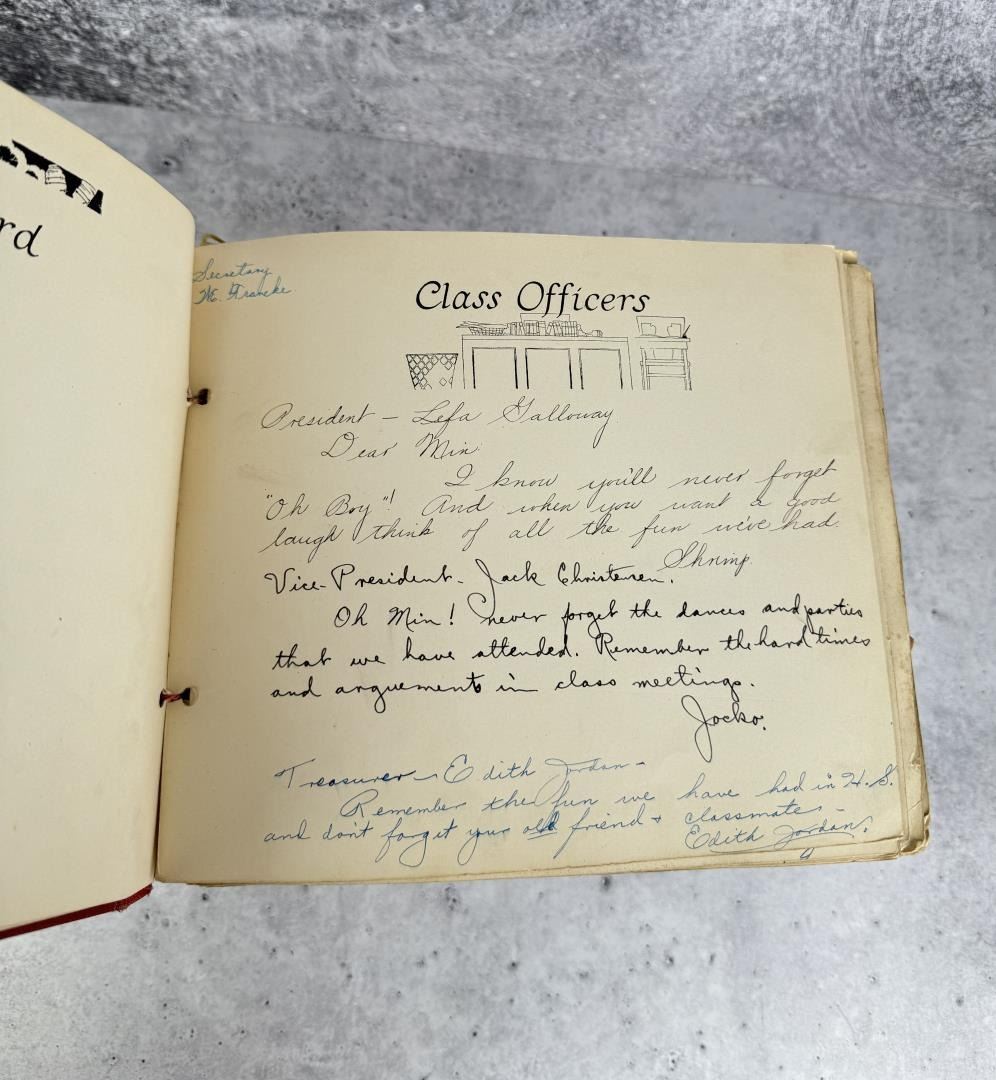 rd
Secretary
M. Francke
Class Officers
President - Lefa Galloway
Dear Min:
I know you'll never forget
"Oh Boy"! And when you want a good
laugh think of all the fun we've had.
Shrimp.
Vice-President - Jack Christensen.
Oh Min! never forget the dances and parties
that we have attended. Remember the hard times
and arguements in class meetings.
Jocko.
Treasurer - Edith Jordan -
Remember the fun we have had in H.S.
and don't forget your old friend + classmate -
Edith Jordan.